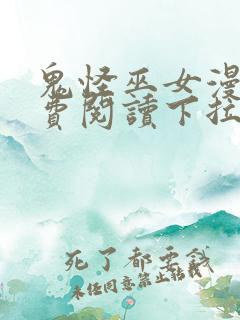 鬼怪巫女漫
費閱讀下拉
死了都要錢
未经同意禁止转载